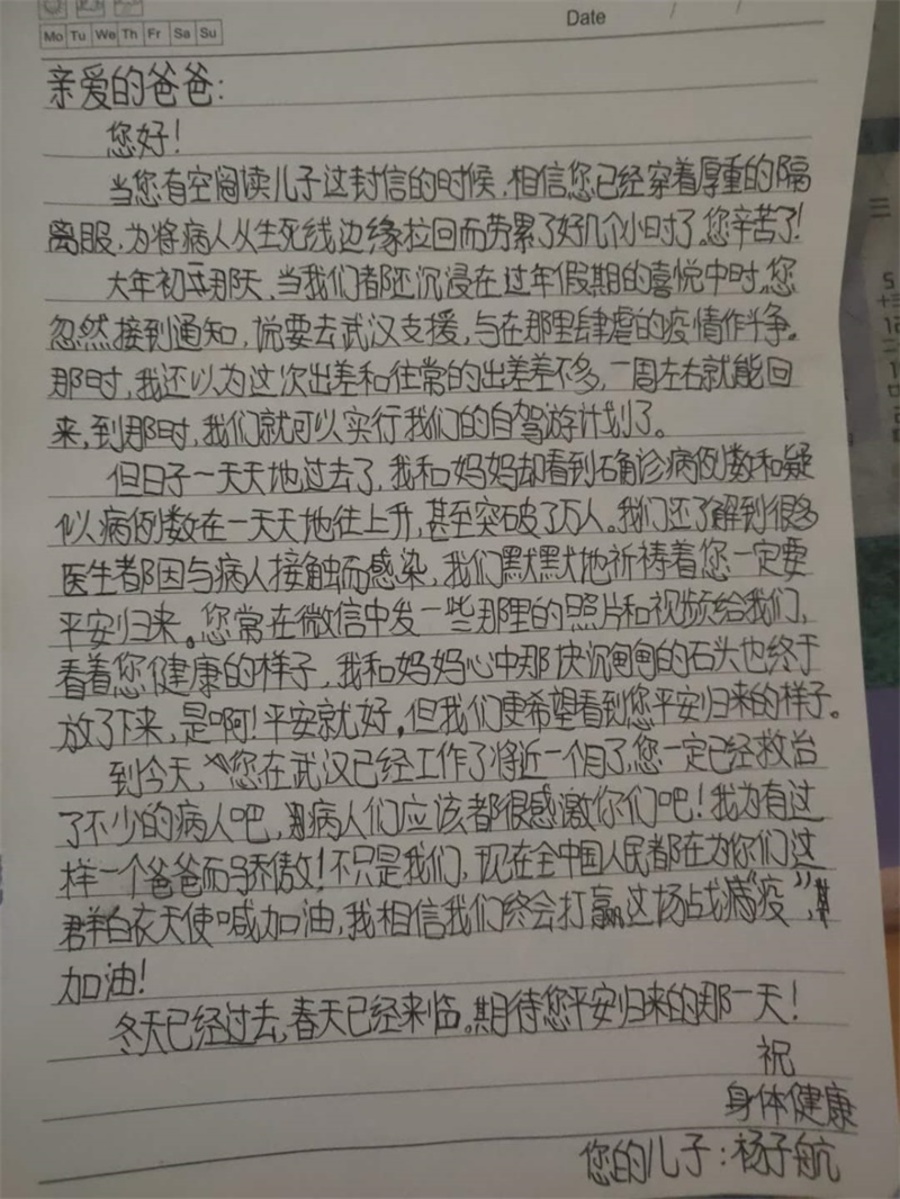 Date / /
Mo Tu We Th Fr Sa Su
亲爱的爸爸:
您好!
当您有空阅读儿子这封信的时候,相信您已经穿着厚重的隔
离服,为将病人从生死线边缘拉回而劳累了好几个小时了。您辛苦了!
大年初三那天,当我们都还沉浸在过年假期的喜悦中时,您
忽然接到通知,说要去武汉支援,与在那里肆虐的疫情作斗争。
那时,我还以为这次出差和往常的出差差不多,一周左右就能回
来,到那时,我们就可以实行我们的自驾游计划了。
但日子一天天地过去了,我和妈妈却看到确诊病例数和疑
似病例数在一天天地往上升,甚至突破了万人。我们还了解到很多
医生都因与病人接触而感染,我们默默地祈祷着您一定要
平安归来。您常在微信中发一些那里的照片和视频给我们,
看着您健康的样子,我和妈妈心中那块沉甸甸的石头也终于
放了下来,是啊!平安就好,但我们更希望看到您平安归来的样子。
到今天,您在武汉已经工作了将近一个月了,您一定已经救治
了不少的病人吧,病人们应该都很感激你们吧!我为有这
样一个爸爸而骄傲!不只是我们,现在全中国人民都在为你们这
群白衣天使喊加油,我相信我们终会打赢这场战“疫”,
加油!
冬天已经过去,春天已经来临。期待您平安归来的那一天!
祝
身体健康
您的儿子:杨子航